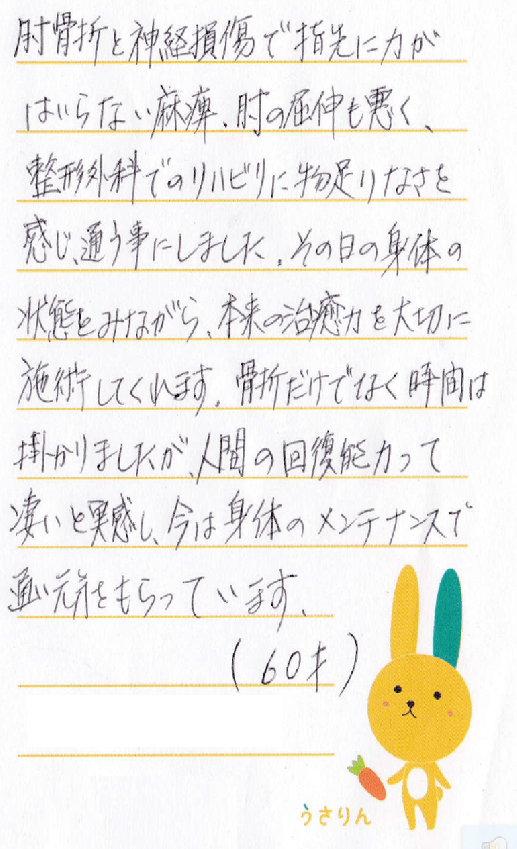 肘骨折と神経損傷で指先に力が
はいらない麻痺、肘の屈伸も悪く、
整形外科でのリハビリに物足りなさを
感じ、通う事にしました。その日の身体の
状態をみながら、本来の治癒力を大切に
施術してくれます。骨折だけでなく時間は
掛かりましたが、人間の回復能力って
凄いと実感し、今は身体のメンテナンスで
通い元気をもらっています。
(60才)
うさりん